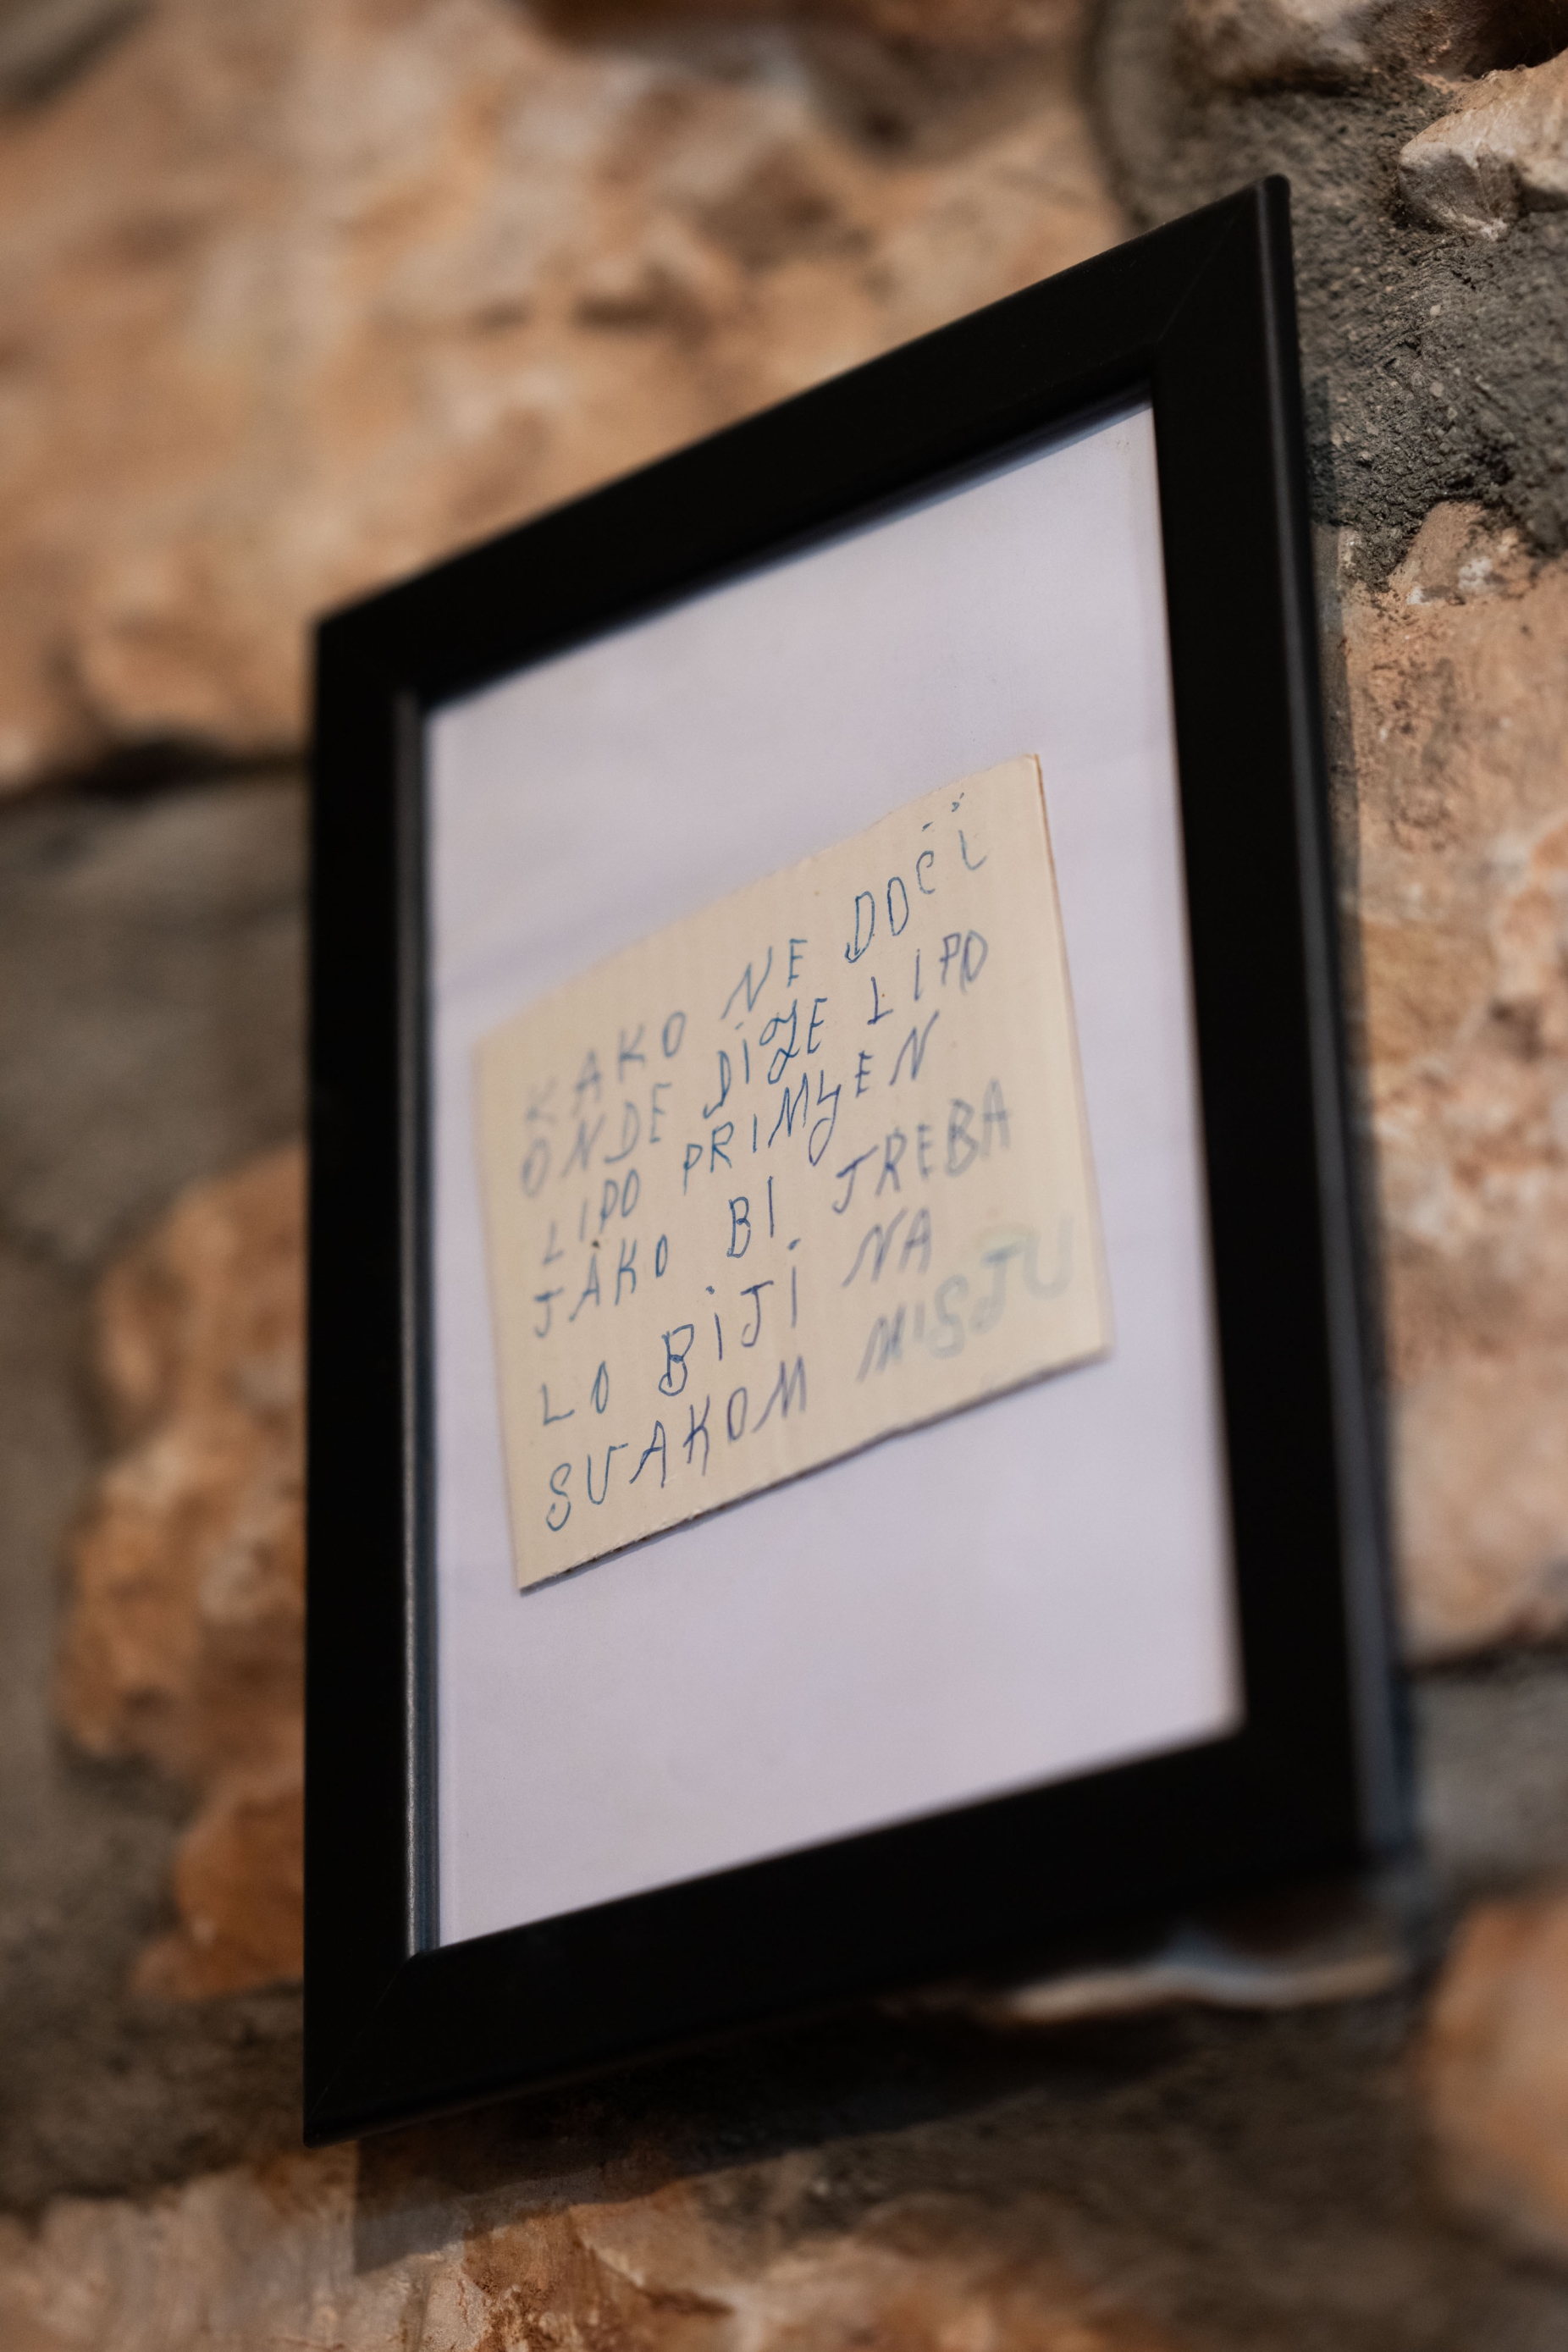 KAKO NE DOĆI
ONDE DIŽE LIPO
LIPO PRIMLJEN
JAKO BI TREBA
LO BITI NA
SVAKOM MISTU